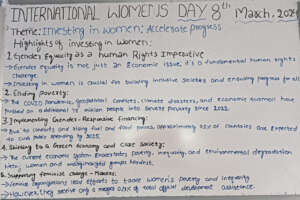 INTERNATIONAL WOMEN'S DAY 8th March, 2024
Theme: Investing in women: Accelerate progress
Highlights of investing in Women:
1. Gender Equality as a human Rights Imperative
Gender equality is not just an Economic issue, it's a fundamental human rights
change.
Investing in women is crucial for building inclusive societies and ensuring progress for all
2. Ending Poverty:
The COVID Pandemic, geopolitical Conflicts, Climate disasters, and economic turmoil have
pushed an additional 75 million people into Severe Poverty since 2020.
3. Implementing Gender-Responsive Financing:
Due to Conflicts and rising fuel and food prices, approximately 75% of Countries are Expected
to Curb Public spending by 2025.
4. Shifting to a Green Economy and Care Society:
The current economic system Exacerbates poverty, inequality, and environmental degradation
women and marginalized groups hardest.
5. Supporting feminist Change-Makers:
organisations lead efforts to tackle women's Poverty and inequality
However, they receive only a meagre 0.13% of total official development assistance.